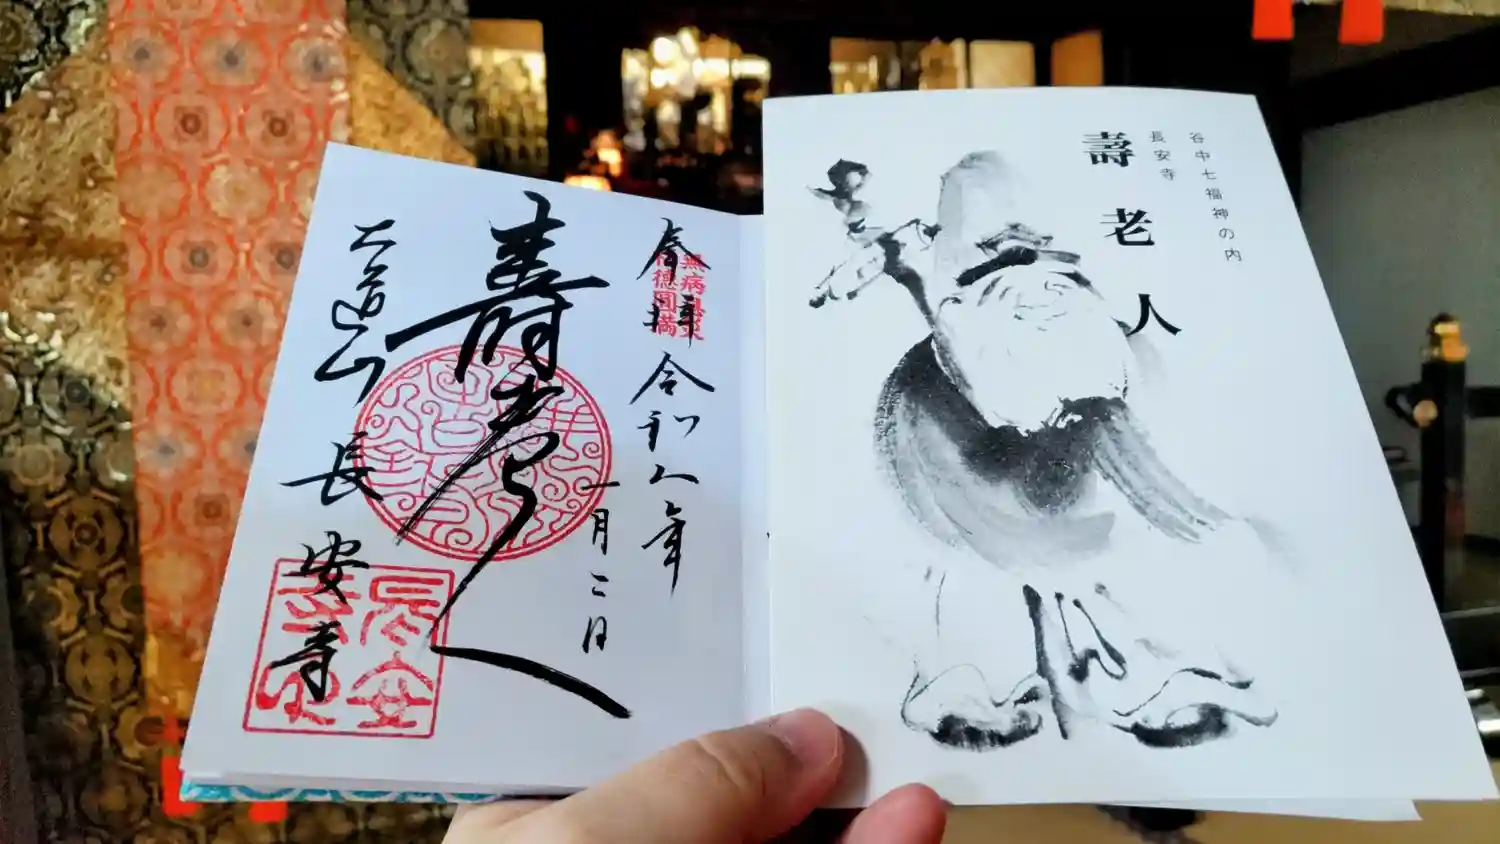 谷中七福神の内
長安寺
壽老人
奉拝 令和八年
一月二日
無病息災
福徳圓満
壽老人
大道山
長安寺